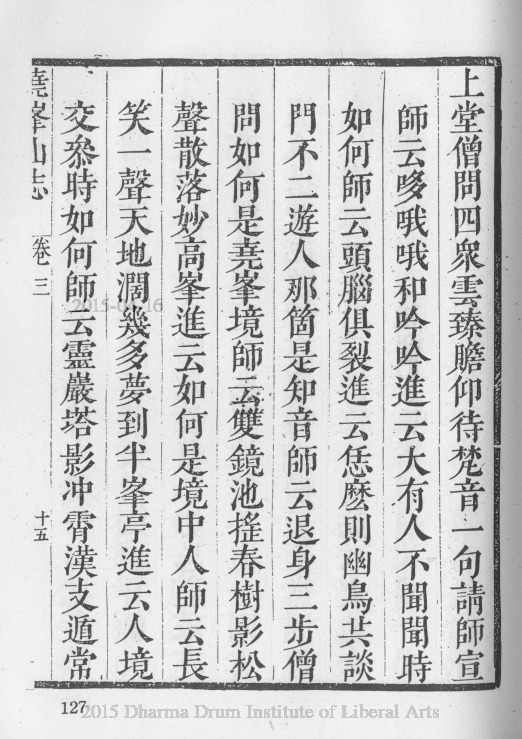 上堂僧問四衆雲臻瞻仰待梵音一句請師宣
師云哆哦哦和吟吟進云大有人不聞聞時
如何師云頭腦俱裂進云恁麽則幽鳥共談
門不二遊人那箇是知音師云退身三步僧
問如何是堯峯境師云雙鏡池搖春樹影松
聲散落妙高峯進云如何是境中人師云長
笑一聲天地濶幾多夢到半峯亭進云人境
交叅時如何師云靈巖塔影冲霄漢支遁常
堯峯山志 卷三 十五
2015-01-16
127
2015 Dharma Drum Institute of Liberal Arts